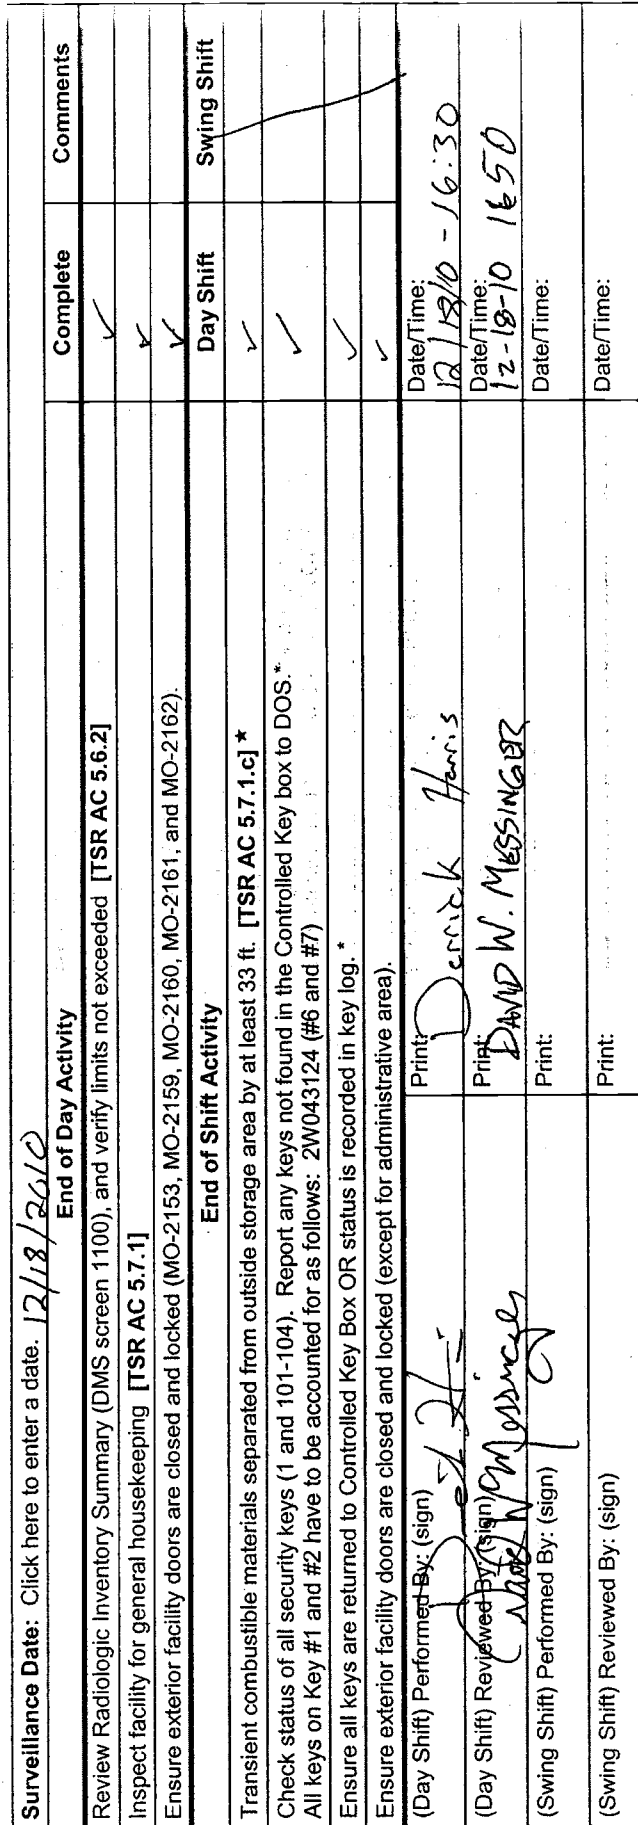 Surveillance Date: Click here to enter a date. 12/18/2010
End of Day Activity Complete Comments
Review Radiologic Inventory Summary (DMS screen 1100), and verify limits not exceeded [TSR AC 5.6.2] ✓
Inspect facility for general housekeeping [TSR AC 5.7.1] ✓
Ensure exterior facility doors are closed and locked (MO-2153, MO-2159, MO-2160, MO-2161, and MO-2162). ✓
End of Shift Activity Day Shift Swing Shift
Transient combustible materials separated from outside storage area by at least 33 ft. [TSR AC 5.7.1.c] * ✓
Check status of all security keys (1 and 101-104). Report any keys not found in the Controlled Key box to DOS.* ✓
All keys on Key #1 and #2 have to be accounted for as follows: 2W043124 (#6 and #7)
Ensure all keys are returned to Controlled Key Box OR status is recorded in key log. * ✓
Ensure exterior facility doors are closed and locked (except for administrative area). ✓
(Day Shift) Performed By: (sign) Print: Derrick Harris Date/Time: 12/18/10 - 16:30
(Day Shift) Reviewed By: (sign) David W Messinger Print: DAVID W. MESSINGER Date/Time: 12-18-10 1650
(Swing Shift) Performed By: (sign) Print: Date/Time:
(Swing Shift) Reviewed By: (sign) Print: Date/Time: